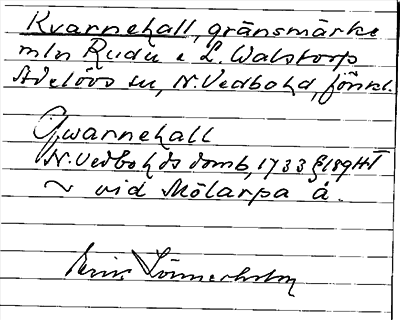 Kvarnehall, gränsmärke
mln Rudu o L. Walstorp
Adelövs sn, N. Vedbo hd, Jönk l.
Qwarnehall
N. Vedbo hds domb, 1733 § 189 HT
~ vid Mölarpa å.